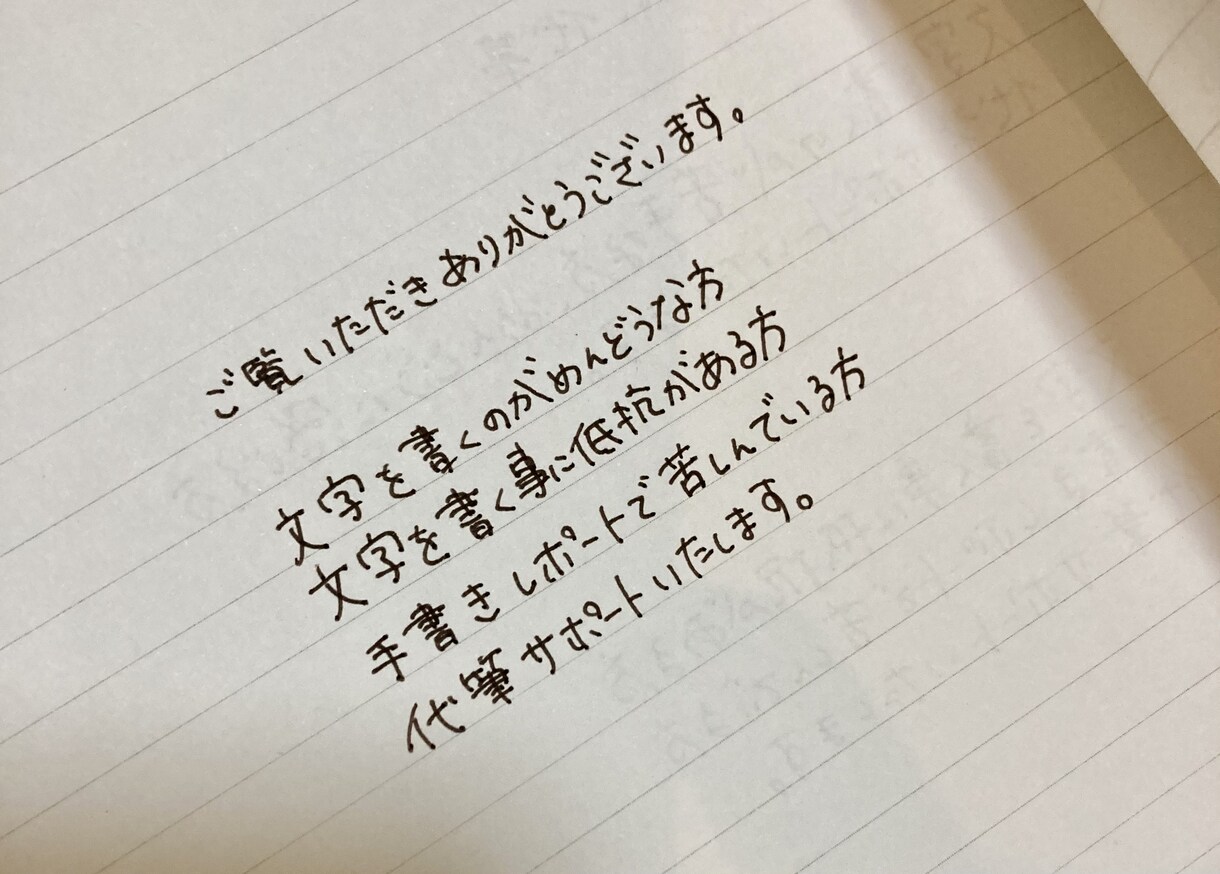 ご覧いただきありがとうございます。
文字を書くのがめんどうな方
文字を書く事に低抗がある方
手書きレポートで苦しんでいる方
代筆サポートいたします。